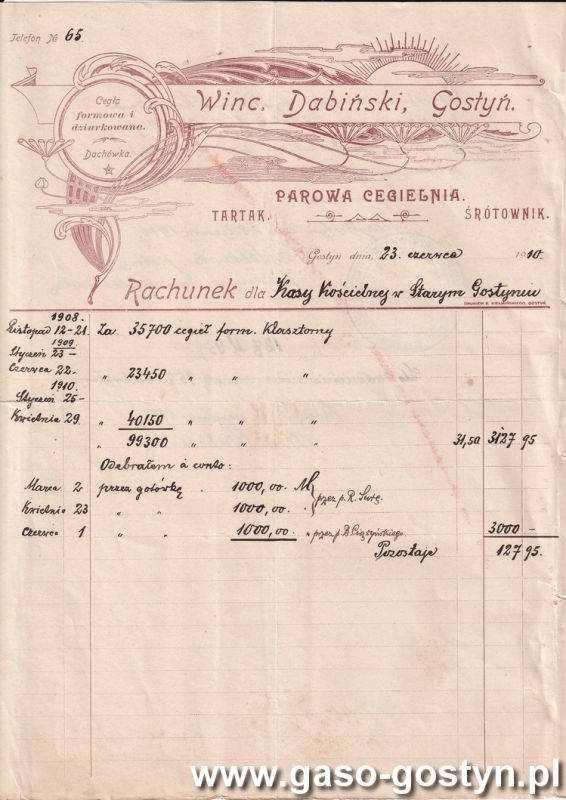 Telefon № 65
Cegła
formowa i
dziurkowana.
Dachówka.
Winc. Dabiński, Gostyń.
PAROWA CEGIELNIA.
TARTAK. ŚRÓTOWNIK.
Gostyn dnia, 23. czerwca 1910.
Rachunek dla Kasy Kościelnej w Starym Gostyniu
1908.
Listopad 12-21. Za 35700 cegieł form. Klasztorny
1909
Styczeń 23 —
Czerwca 22. " 23450 " " "
1910.
Styczeń 25 —
Kwietnia 29. " 40150 " " "
" 99300 " " " 31,50 3127 95
Odebrałem à conto:
Marca 2 przez gotówkę . 1000,00. M przez p. R.
Kwietnia 23 " " 1000,00. "
Czerwca 1 " " 1000,00. " przez p. B. Ciążyńskiego. 3000 —
Pozostaje 127 95.
www.gaso-gostyn.pl